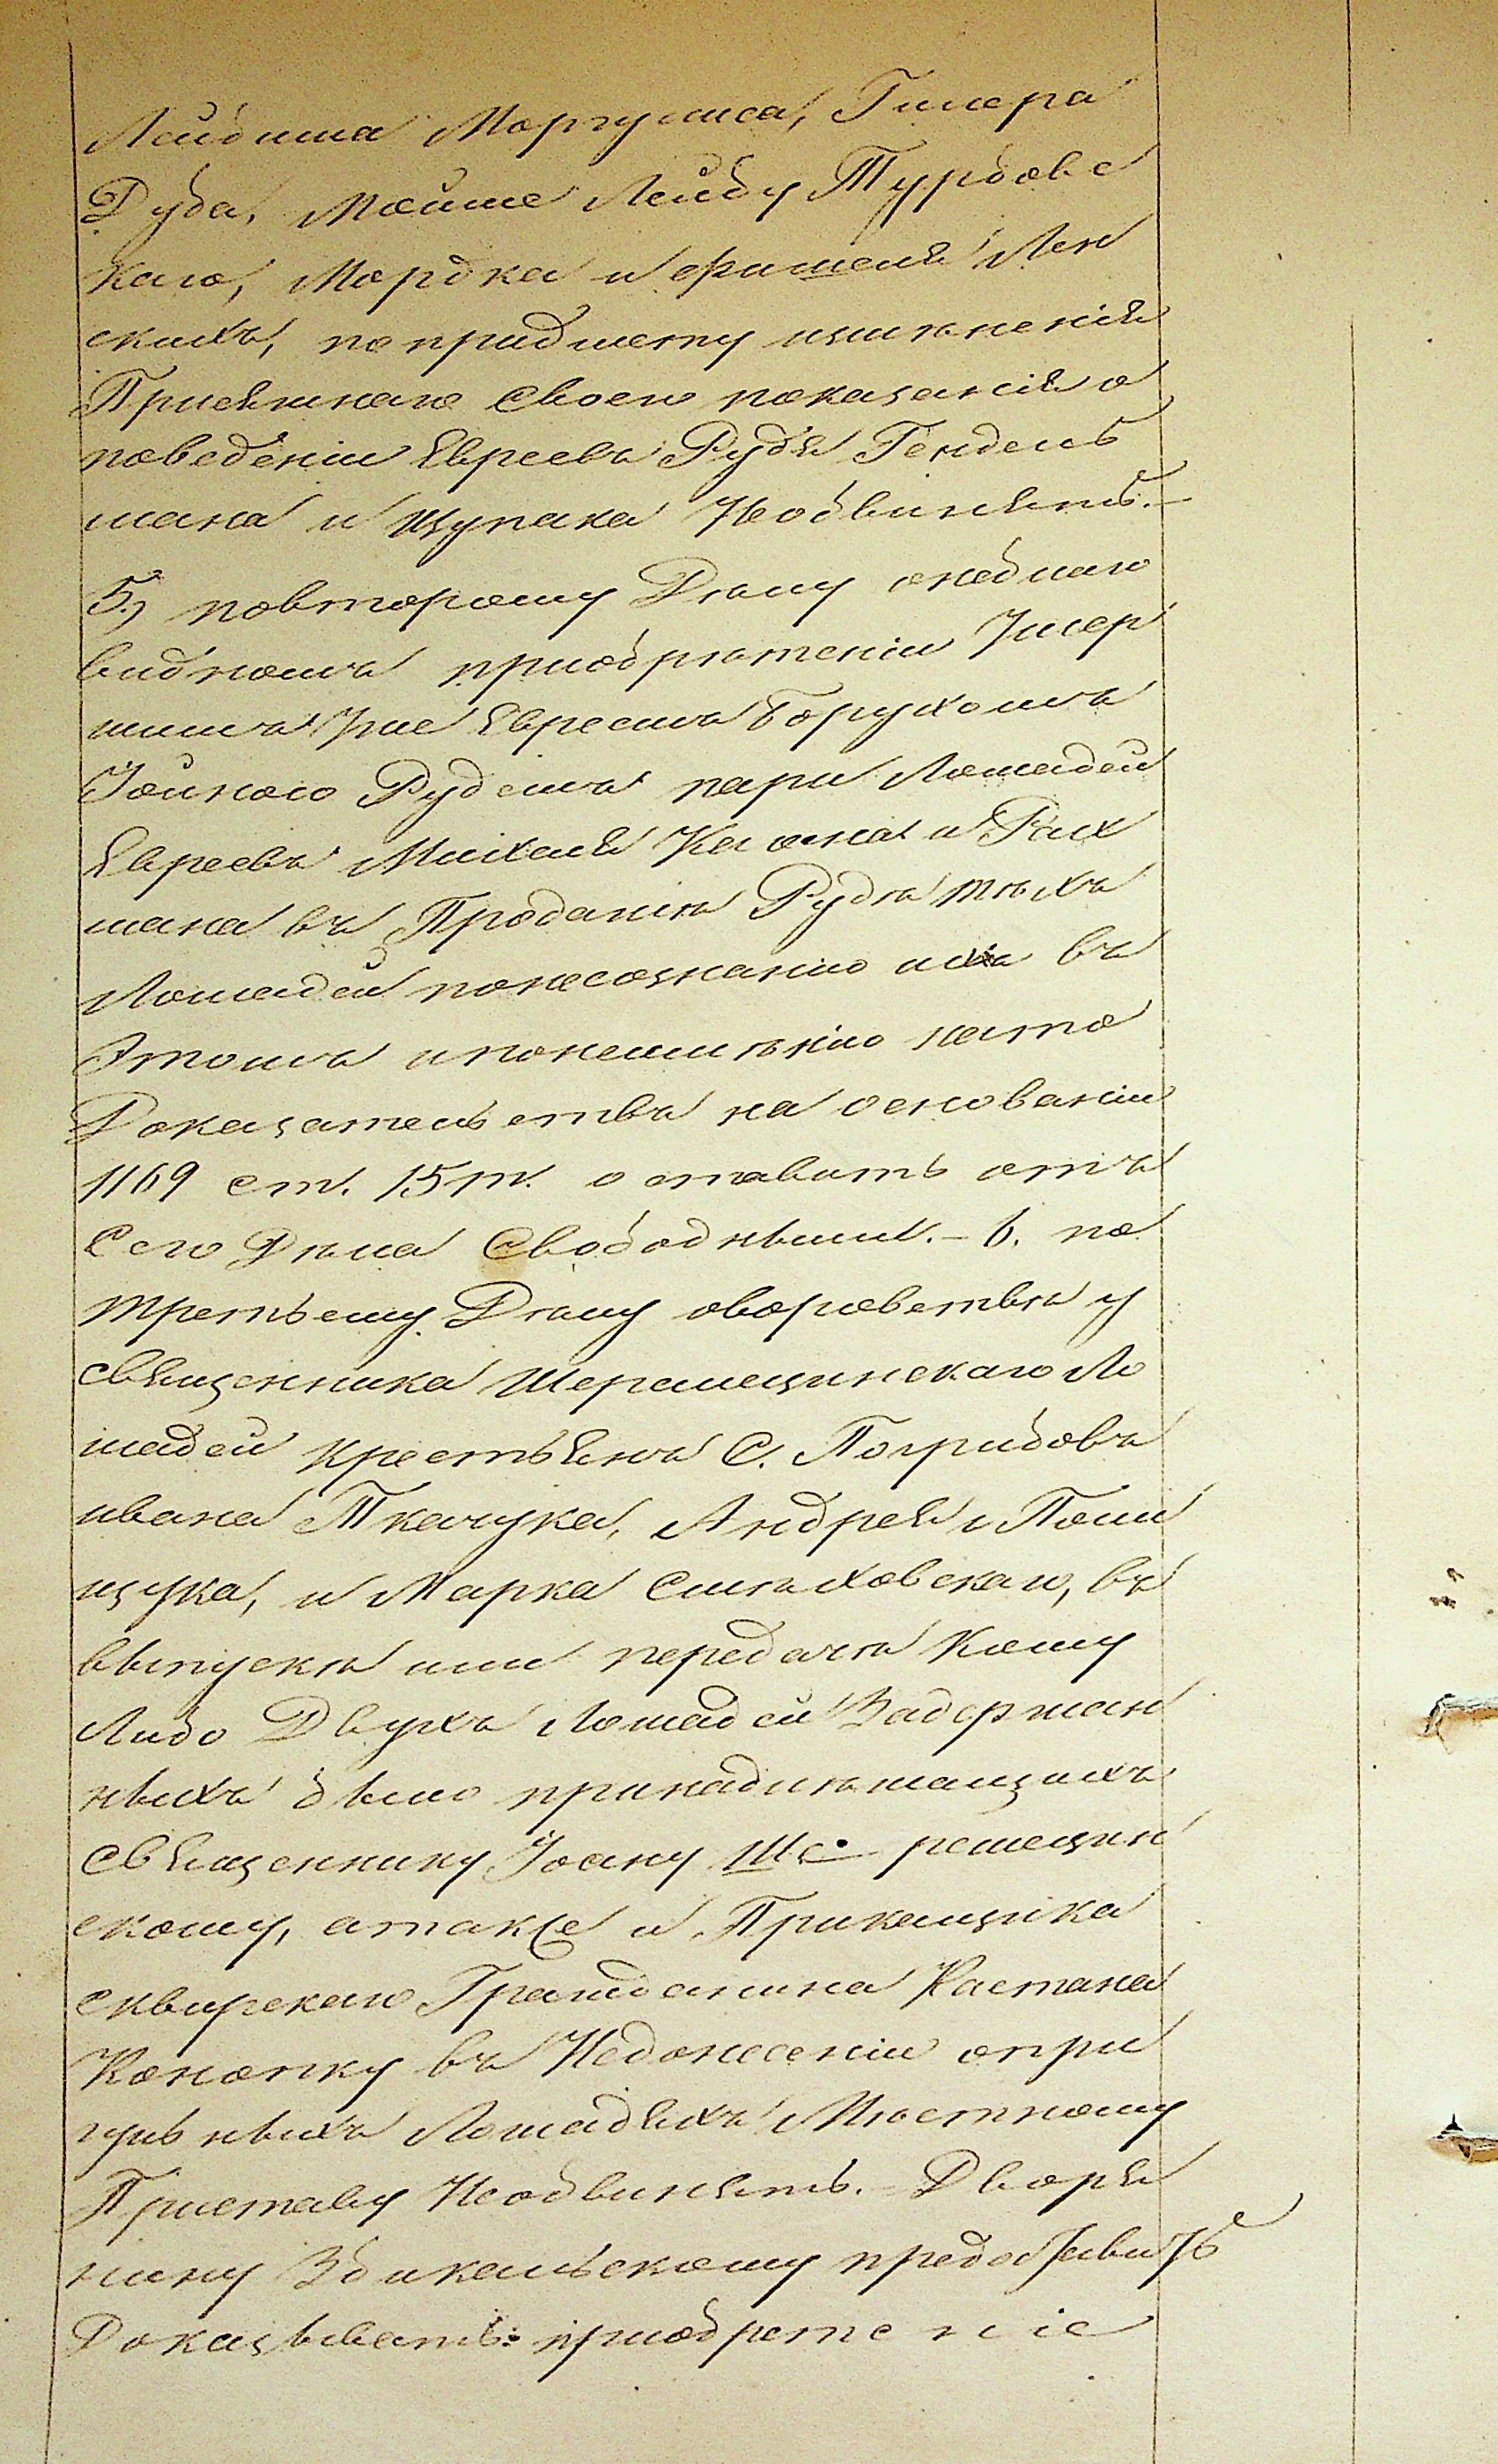 Лейбиша Моргулиса, Гилера
Дуба, Мойше Лейбу Турбовс
каго, Мордка и Фишеля Лен
скихъ, по придмету измѣненія
Присяжнаго своего показанія о
поведеніи Евреевъ Рудя Гендель
мана и Щупака Необвинять.–
5) повторому Дѣлу онебла го
видномъ приобрѣтеніи Умер
шимъ Уже Евреемъ Борухомъ
Іойною Рудемъ пары Лошадей
Евреевъ Михеля Когана и Рах
мана въ Проданіи Рудѣ тѣхъ
Лошадей понесознанію ихъ въ
Этомъ и понеимѣнію на то
Доказательствъ на основаніи
1169 ст. 15 т. оставить отъ
Сего Дѣла Свободными.– 6. по
третьему Дѣлу оворовствѣ у
священника Шеремецинскаго Ло
шадей крестьянъ С. Погрибовъ
ивана Ткачука, Андрея Поли
щука, и Марка Смѣховскаго, въ
выпускѣ или передачѣ кому
Либо Двухъ Лошадей Задержан
ныхъ было принадлѣжащихъ
священнику Іоану Ше ремецин
скому, атакже и Прикащика
сквирскаго Гражданина Кастана
Конопку въ Недонесеніи о при
гульныхъ Лошадяхъ Мѣстному
Приставу Необвинять.– Дворя
нину Здикельскому предоставить
Доказывать приобретеніе